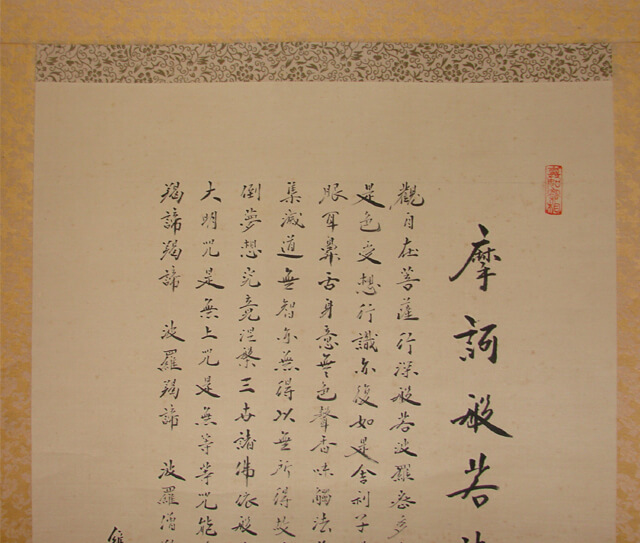 摩訶般若波
觀自在菩薩行深般若波羅蜜多
是色受想行識亦復如是舍利子
眼耳鼻舌身意無色聲香味觸法
集滅道無智亦無得以無所得故
倒夢想究竟涅槃三世諸佛依般
大明咒是無上咒是無等等咒能
羯諦羯諦 波羅羯諦 波羅僧